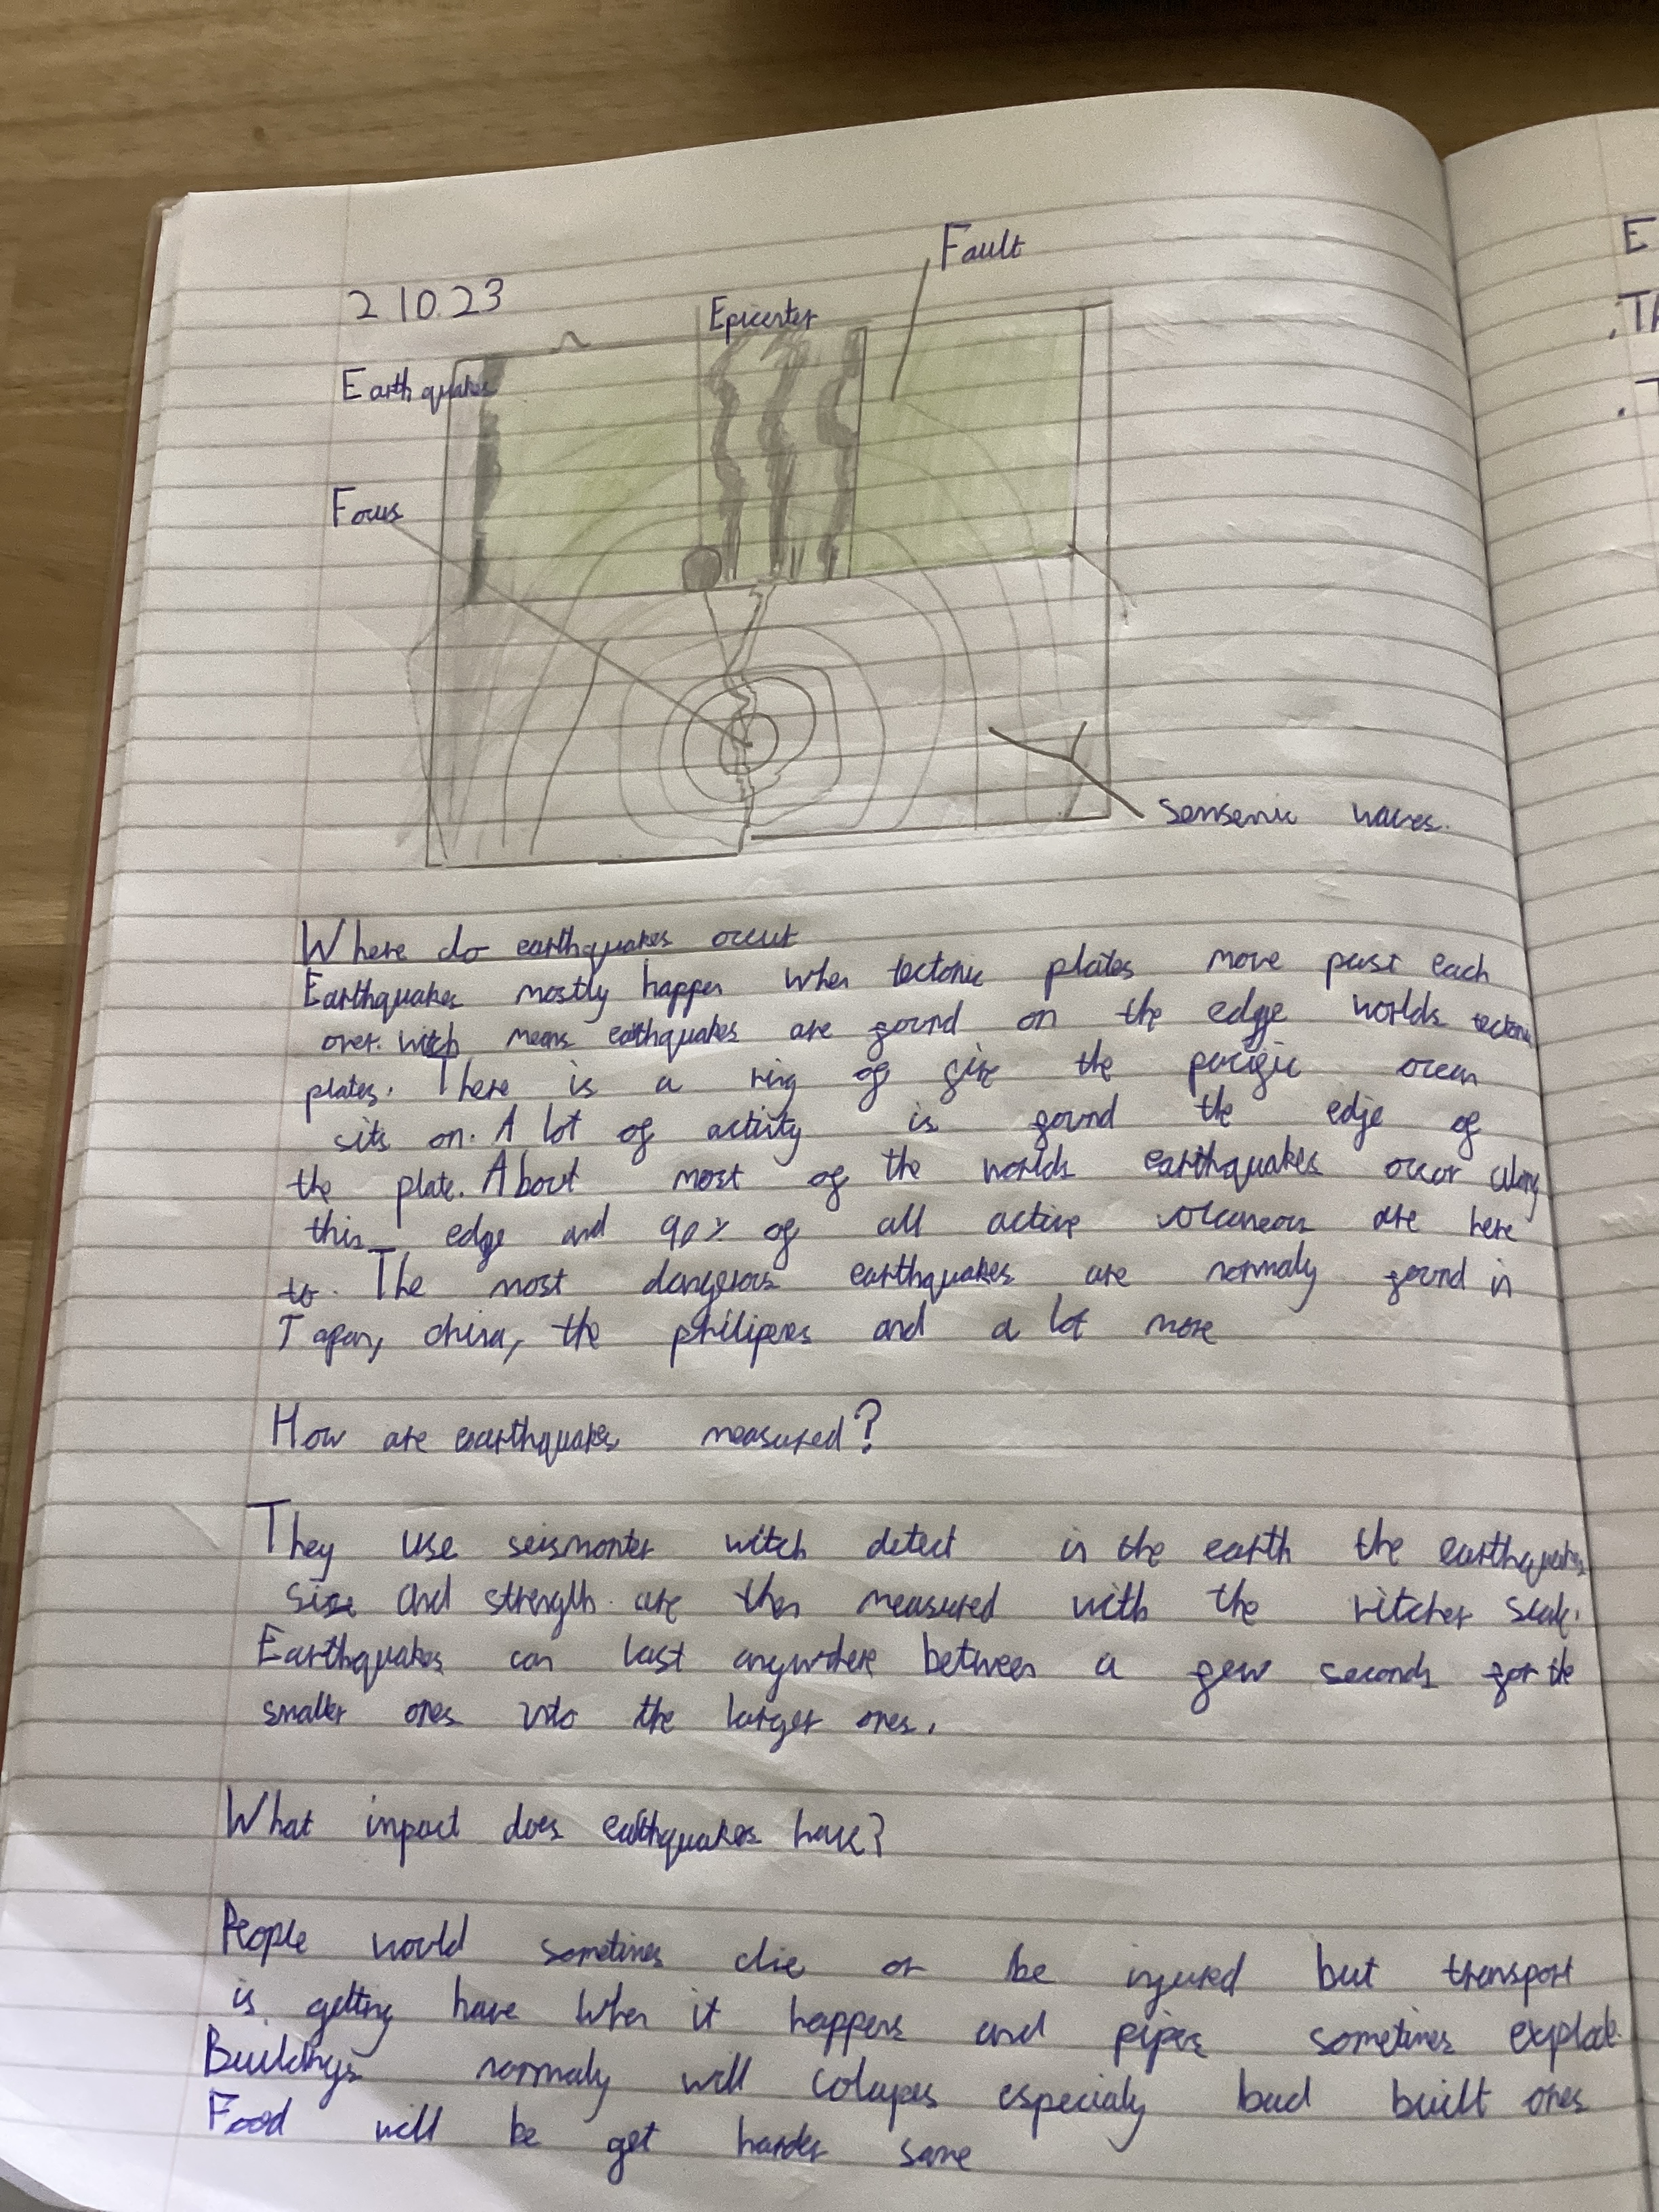 Fault
2 10 23
Epicenter
Earthquakes
Focus
Sensemic waves.
Where do earthquakes occur
Earthquakes mostly happen when tectonic plates move past each
over. witch means earthquakes are found on the edge worlds tectonic
plates. There is a ring of fire the pacific ocean
sits on. A lot of activity is found the edge of
the plate. About most of the worlds earthquakes occur along
this edge and 90% of all active are here
to. The most dangerous earthquakes are normaly found in
Japan, china, the philipenes and a lot more
How are earthquakes measured?
They use witch detect in the earth the earthquakes
size and strength. are then measured with the ritcher scale.
Earthquakes can last anywhere between a few seconds for the
smaller ones into the larger ones.
What inpact does earthquakes have?
People would sometimes die or be injured but transport
is getting have when it happens and pipes sometimes explode.
Buildings normaly will colapes especialy bad built ones
Food will be get harder same
E
.
.T